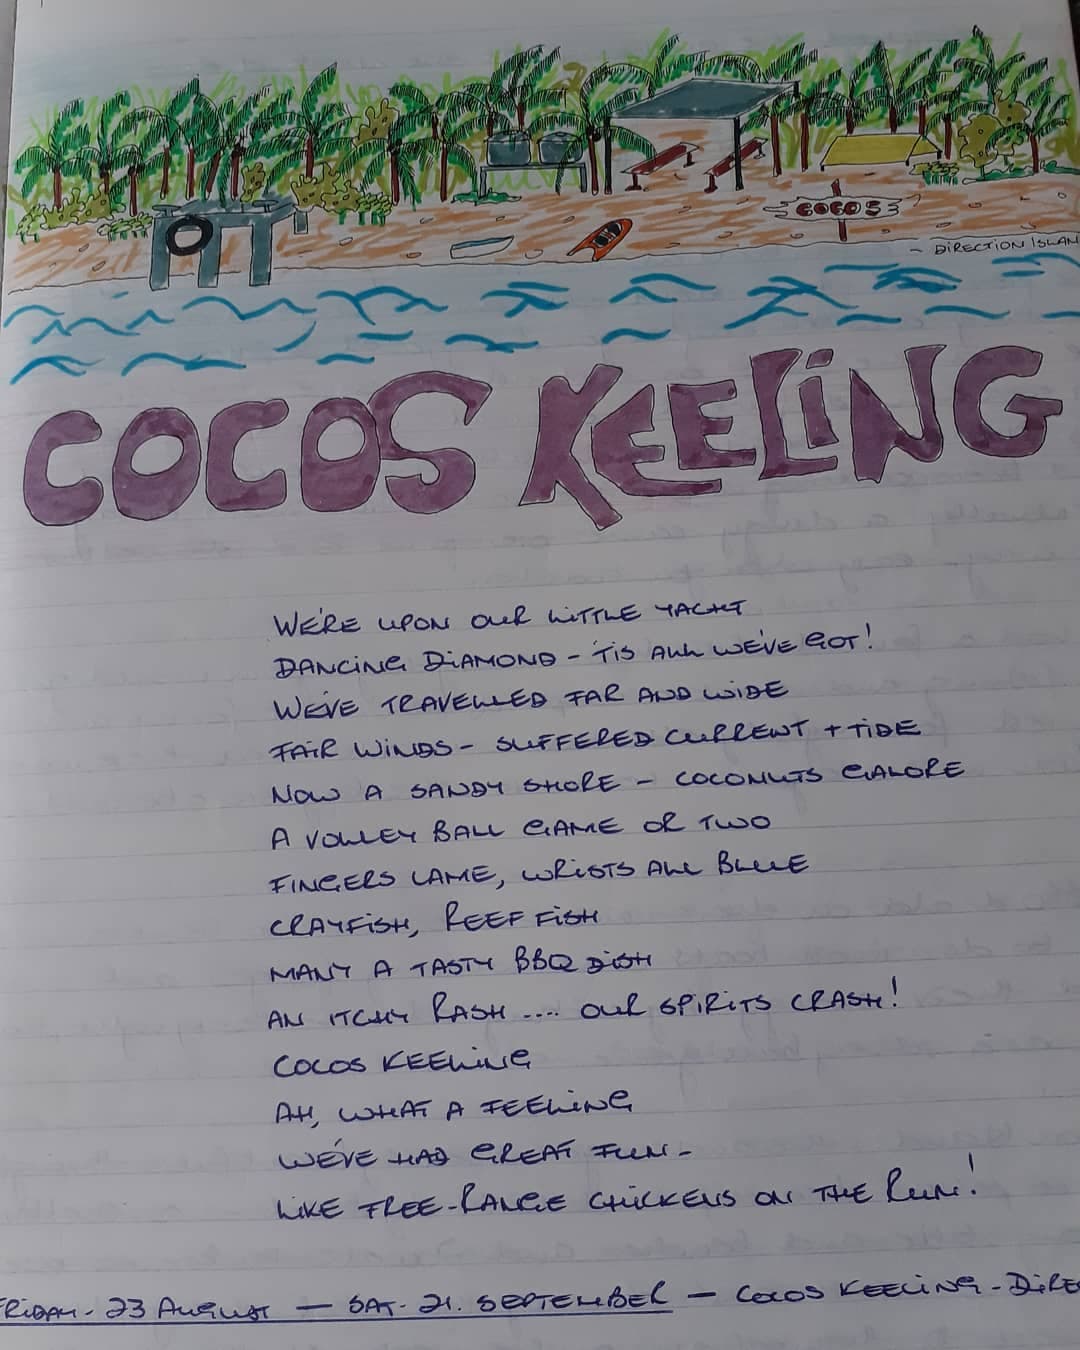 COCOS
~ DIRECTION ISLAN
COCOS KEELING
WE'RE UPON OUR LITTLE YACHT
DANCING DIAMOND - 'TIS ALL WE'VE GOT!
WE'VE TRAVELLED FAR AND WIDE
FAIR WINDS - SUFFERED CURRENT + TIDE
NOW A SANDY SHORE - COCONUTS GALORE
A VOLLEY BALL GAME OR TWO
FINGERS LAME, WRISTS ALL BLUE
CRAYFISH, REEF FISH
MANY A TASTY BBQ DISH
AN ITCHY RASH .... OUR SPIRITS CRASH!
COCOS KEELING
AH, WHAT A FEELING
WE'VE HAD GREAT FUN -
LIKE FREE-RANGE CHICKENS ON THE RUN!
FRIDAY - 23 AUGUST — SAT - 21. SEPTEMBER — COCOS KEELING - DIRE